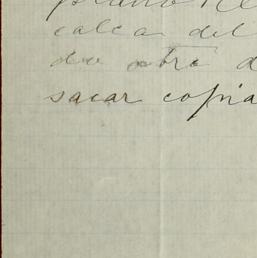 calca del
de otro d
sacar copia